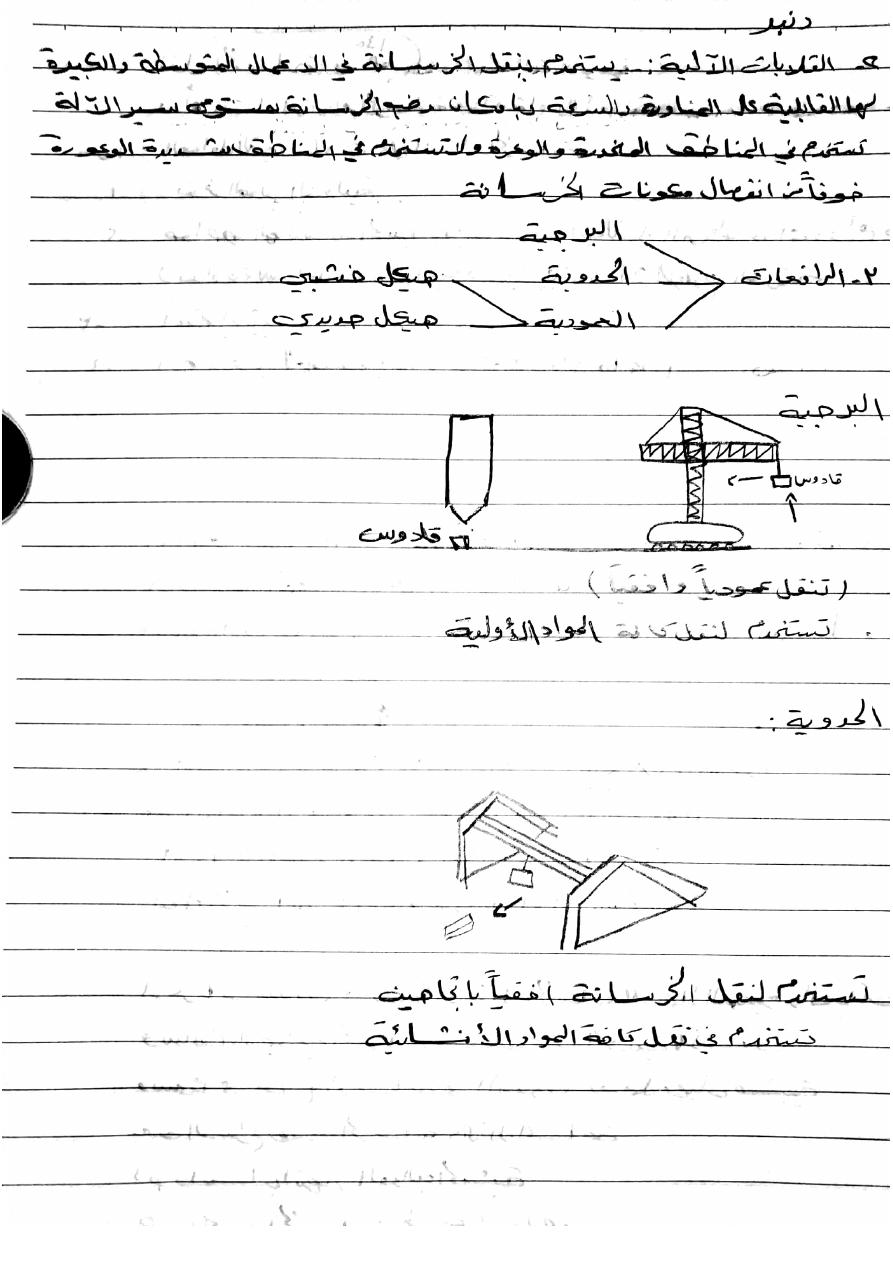 دنبر
ج- القلابات الآلية : يستخدم لنقل الخرسانة في الاعمال المتوسطة والكبيرة
لها القابلية على المناورة والسرعة وبامكان رفع الخرسانة بمستوى سير الآلة
تستخدم في المناطق المنحدرة والوعرة ولا تستخدم في المناطق شديدة الوعورة
خوفاً من انفصال مكونات الخرسانة
٢- الرافعات
البرجية
الحدوية
العمودية
هيكل خشبي
هيكل حديدي
البرجية
قادوس
قادوس
(تنقل عمودياً وافقياً)
. تستخدم لنقل كافة المواد الأولية
الحدوية :
تستخدم لنقل الخرسانة افقياً باتجاهين
تستخدم في نقل كافة المواد الأنشائية